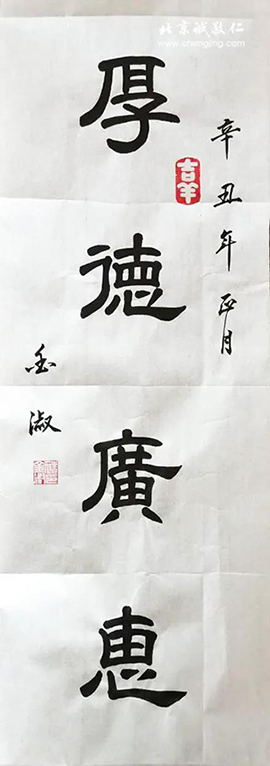 北京诚敬仁
www.chengjing.com
辛丑年正月
吉羊
厚德廣惠
淑